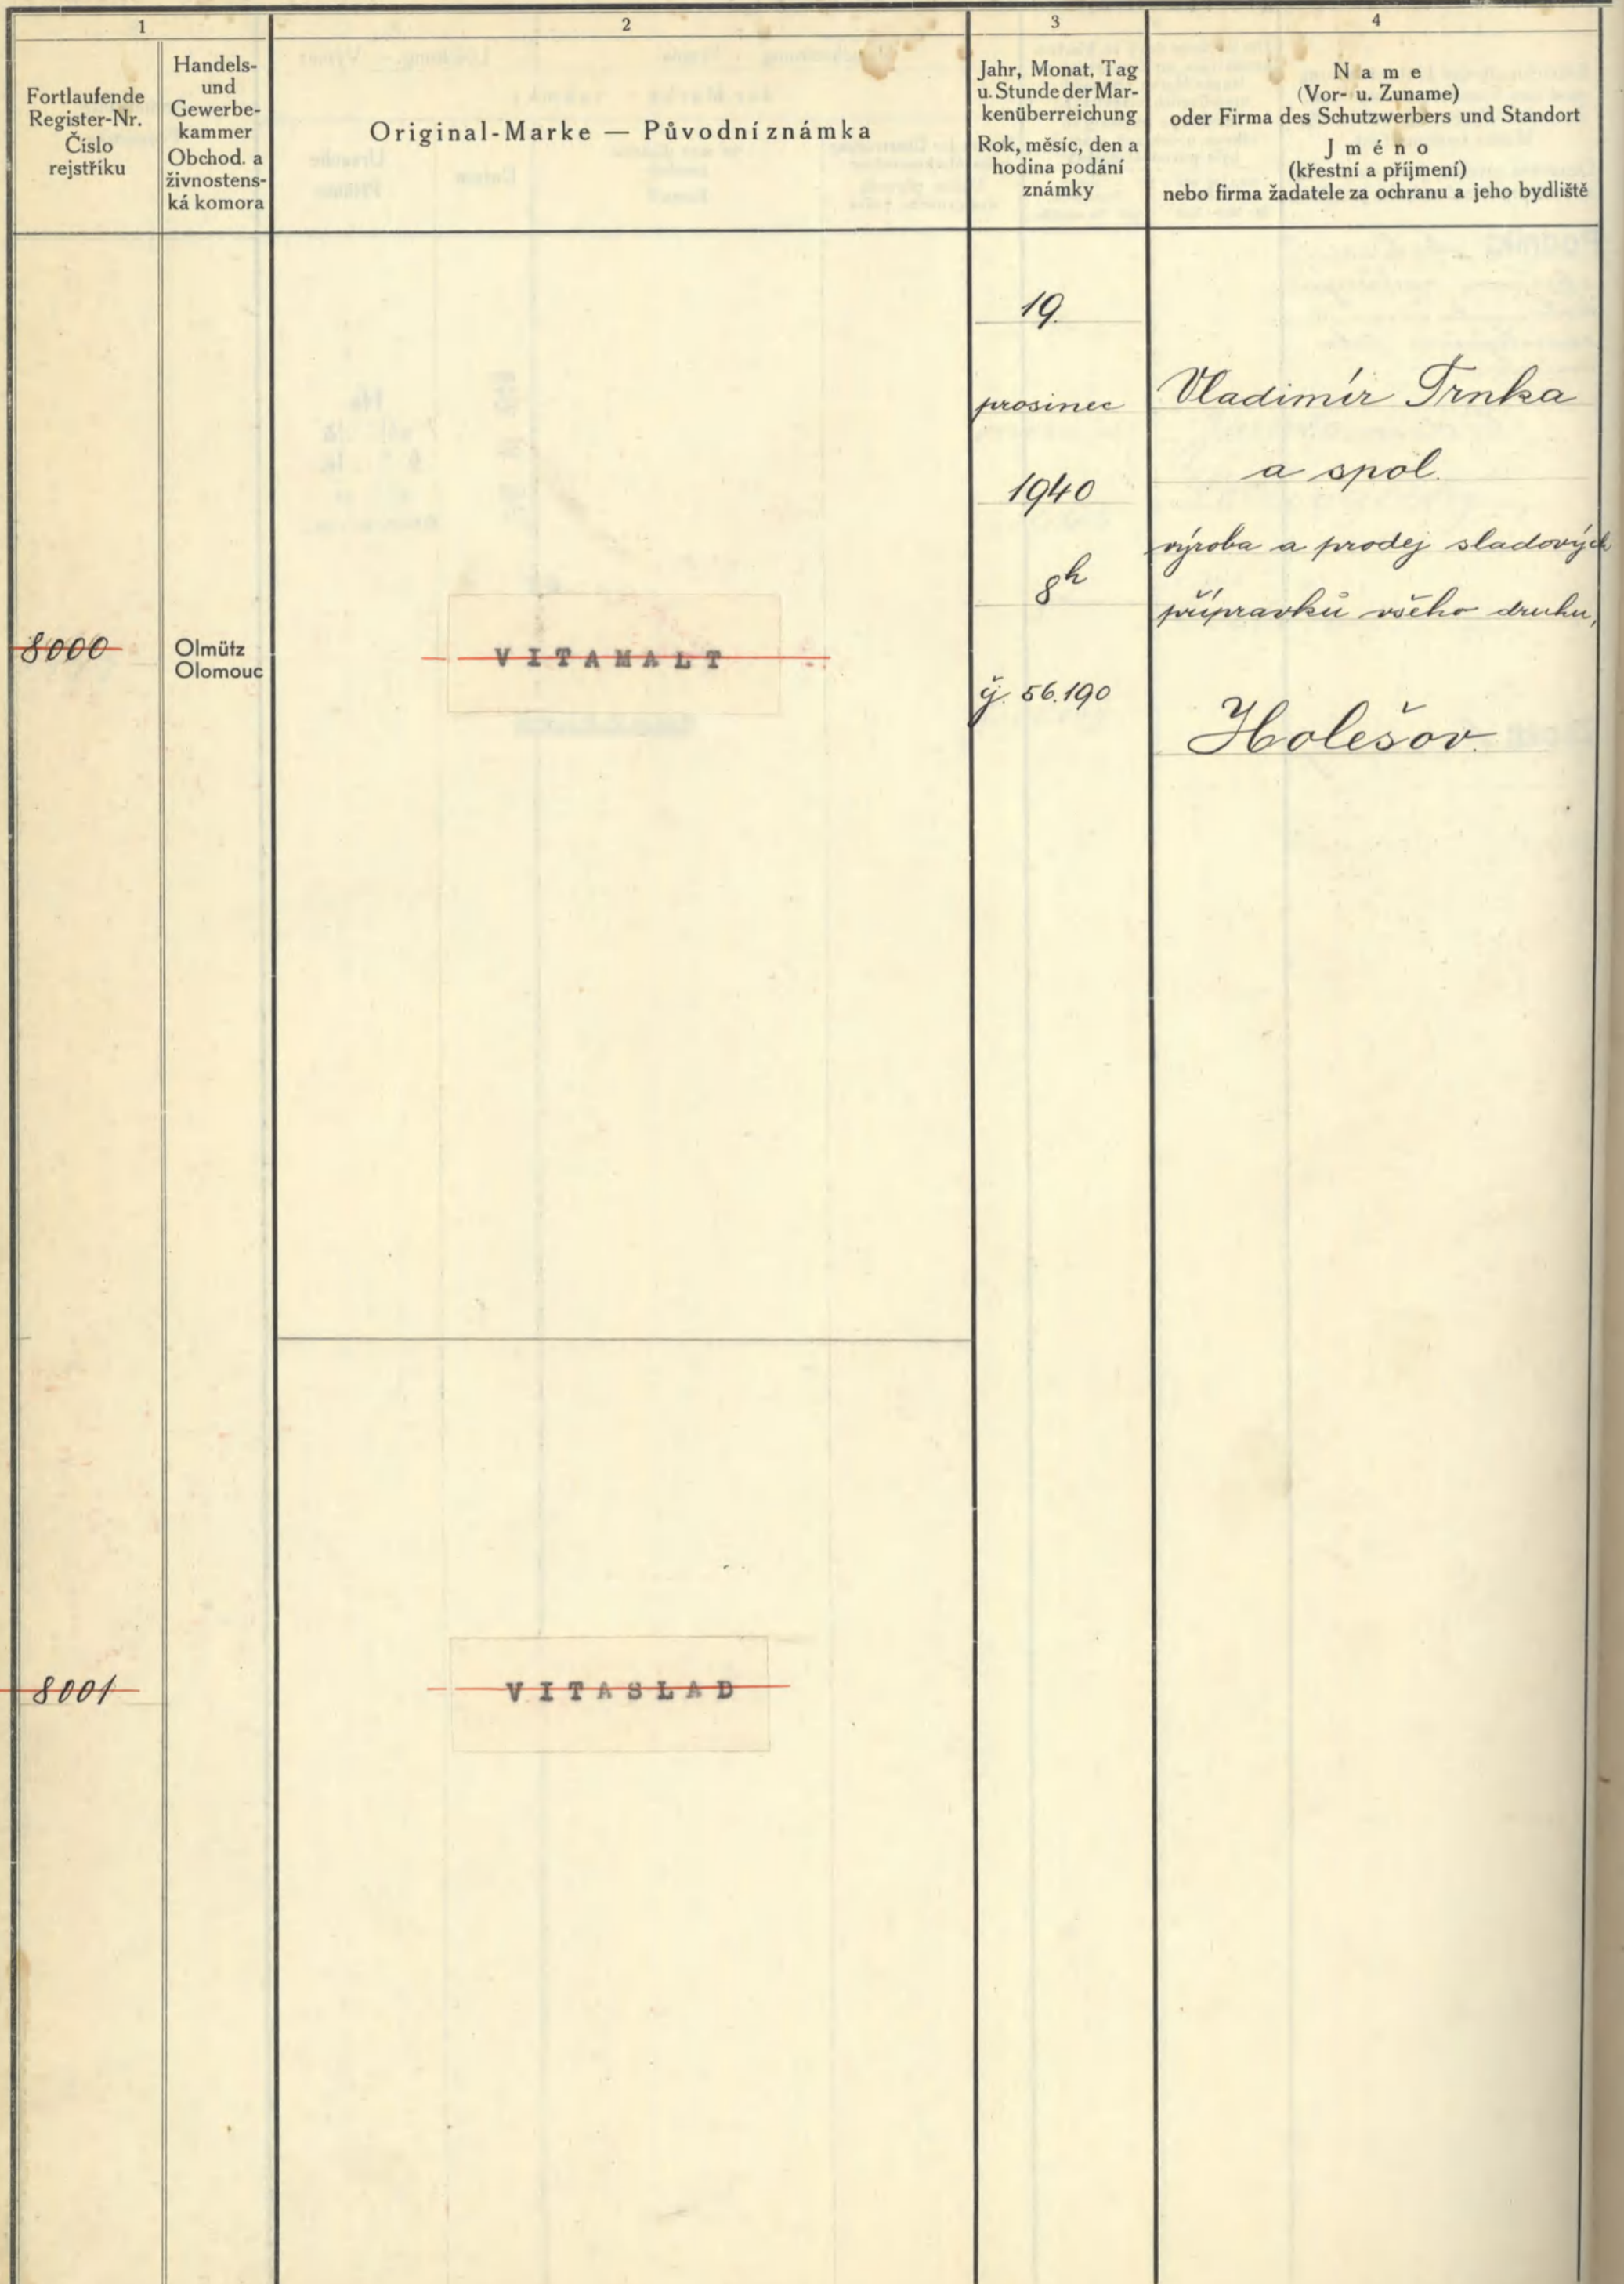 1
2
3
4
Fortlaufende
Register-Nr.
Číslo
rejstříku
Handels-
und
Gewerbe-
kammer
Obchod. a
živnostens-
ká komora
Original-Marke — Původní známka
Jahr, Monat, Tag
u. Stunde der Mar-
kenüberreichung
Rok, měsíc, den a
hodina podání
známky
Name
(Vor- u. Zuname)
oder Firma des Schutzwerbers und Standort
Jméno
(křestní a příjmení)
nebo firma žadatele za ochranu a jeho bydliště
8000
Olmütz
Olomouc
VITAMALT
19.
prosinec
1940
8h
čj. 56.190
Vladimír Trnka
a spol.
výroba a prodej sladových
přípravků všeho druhu,
Holešov.
8001
VITASLAD